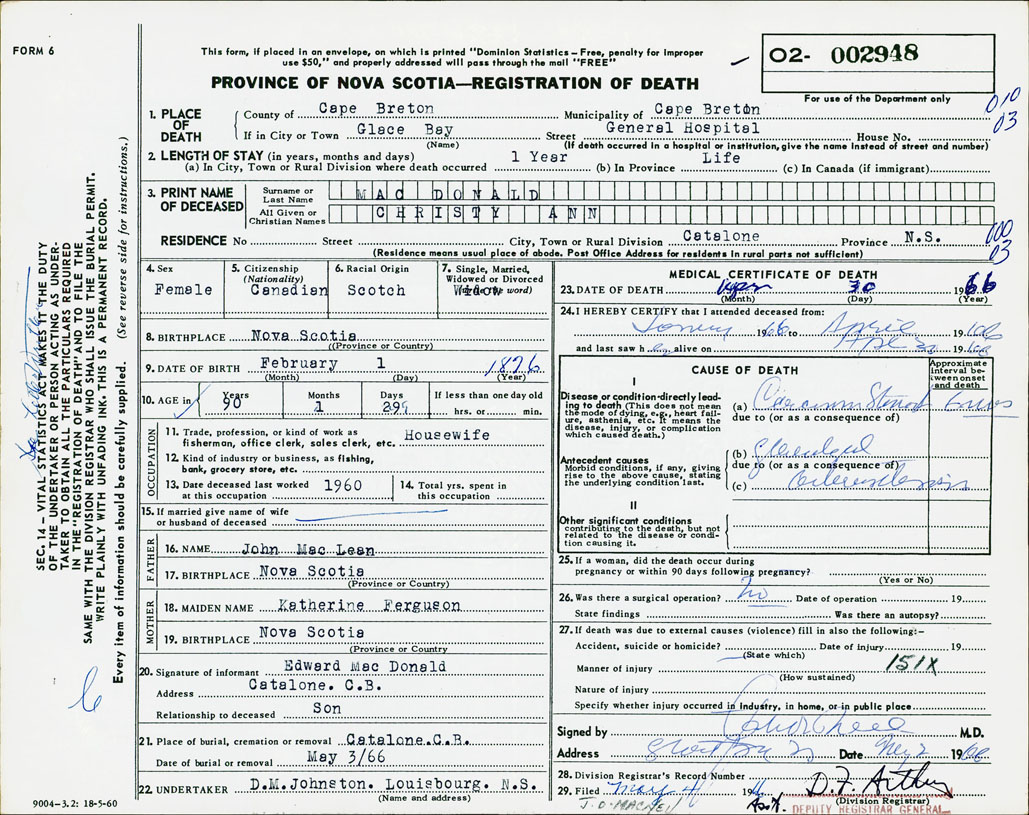 FORM 6
This form, if placed in an envelope, on which is printed "Dominion Statistics – Free, penalty for improper
use $50," and properly addressed will pass through the mail "FREE"
PROVINCE OF NOVA SCOTIA—REGISTRATION OF DEATH
02- 002948
For use of the Department only
010
03
1. PLACE OF DEATH
County of Cape Breton Municipality of Cape Breton
If in City or Town Glace Bay Street General Hospital House No.
(Name) (If death occurred in a hospital or institution, give the name instead of street and number)
2. LENGTH OF STAY (in years, months and days) 1 Year Life
(a) In City, Town or Rural Division where death occurred (b) In Province (c) In Canada (if immigrant)
3. PRINT NAME OF DECEASED
Surname or Last Name MAC DONALD
All Given or Christian Names CHRISTY ANN
000
03
RESIDENCE No Street City, Town or Rural Division Catalone Province N.S.
(Residence means usual place of abode. Post Office Address for residents in rural parts not sufficient)
4. Sex
Female
5. Citizenship
(Nationality)
Canadian
6. Racial Origin
Scotch
7. Single, Married,
Widowed or Divorced
Widow
8. BIRTHPLACE Nova Scotia
(Province or Country)
9. DATE OF BIRTH February 1 1876
(Month) (Day) (Year)
10. AGE in
Years
90
Months
1
Days
29
If less than one day old
hrs. or min.
OCCUPATION
11. Trade, profession, or kind of work as
fisherman, office clerk, sales clerk, etc. Housewife
12. Kind of industry or business, as fishing,
bank, grocery store, etc.
13. Date deceased last worked
at this occupation 1960
14. Total yrs. spent in
this occupation
15. If married give name of wife
or husband of deceased
FATHER
16. NAME John Mac Lean
17. BIRTHPLACE Nova Scotia
(Province or Country)
MOTHER
18. MAIDEN NAME Katherine Ferguson
19. BIRTHPLACE Nova Scotia
(Province or Country
20. Signature of informant Edward Mac Donald
Address Catalone. C.B.
Relationship to deceased Son
21. Place of burial, cremation or removal Catalone.C.B.
Date of burial or removal May 3/66
22. UNDERTAKER D.M.Johnston. Louisbourg. N.S.
(Name and address)
9004–3.2: 18-5-60
MEDICAL CERTIFICATE OF DEATH
23. DATE OF DEATH 30 1966
(Month) (Day) (Year)
24. I HEREBY CERTIFY that I attended deceased from:
1966 to April 1966
and last saw h alive on 30 1966
CAUSE OF DEATH
Approximate
interval be-
tween onset
and death
I
Disease or condition directly lead-
ing to death (This does not mean
the mode of dying, e.g., heart fail-
ure, asthenia, etc. It means the
disease, injury, or complication
which caused death.)
(a)
due to (or as a consequence of)
Antecedent causes
Morbid conditions, if any, giving
rise to the above cause, stating
the underlying condition last.
(b)
due to (or as a consequence of)
(c)
II
Other significant conditions
contributing to the death, but not
related to the disease or condi-
tion causing it.
25. If a woman, did the death occur during
pregnancy or within 90 days following pregnancy?
(Yes or No)
26. Was there a surgical operation? no Date of operation 19
State findings Was there an autopsy?
27. If death was due to external causes (violence) fill in also the following:–
Accident, suicide or homicide? Date of injury 19
(State which)
Manner of injury 151X
(How sustained)
Nature of injury
Specify whether injury occurred in industry, in home, or in public place
Signed by M.D.
Address Date May 2 1966
28. Division Registrar's Record Number
29. Filed May 4 19
(Division Registrar)
DEPUTY REGISTRAR GENERAL
SEC. 14 – VITAL STATISTICS ACT MAKES IT THE DUTY
OF THE UNDERTAKER OR PERSON ACTING AS UNDER-
TAKER TO OBTAIN ALL THE PARTICULARS REQUIRED
IN THE "REGISTRATION OF DEATH" AND TO FILE THE
SAME WITH THE DIVISION REGISTRAR WHO SHALL ISSUE THE BURIAL PERMIT.
WRITE PLAINLY WITH UNFADING INK. THIS IS A PERMANENT RECORD.
Every item of information should be carefully supplied. (See reverse side for instructions.)